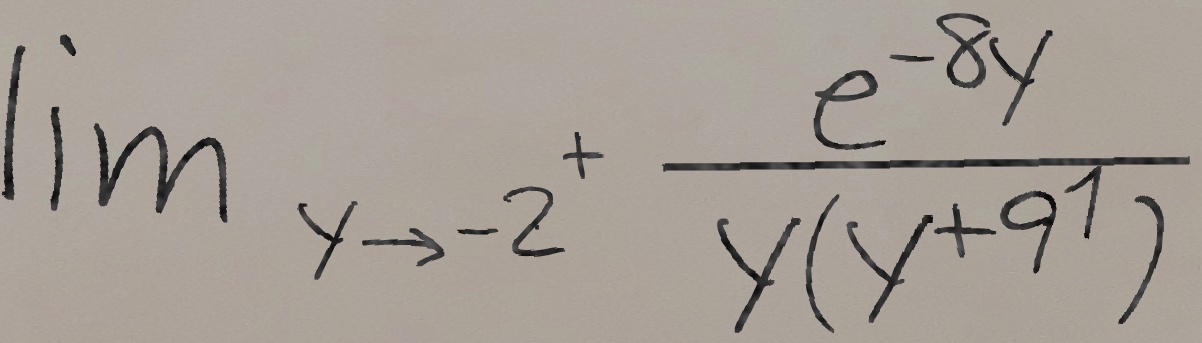 lim y→-2⁺ e^{-8y} / y(y+9¹)